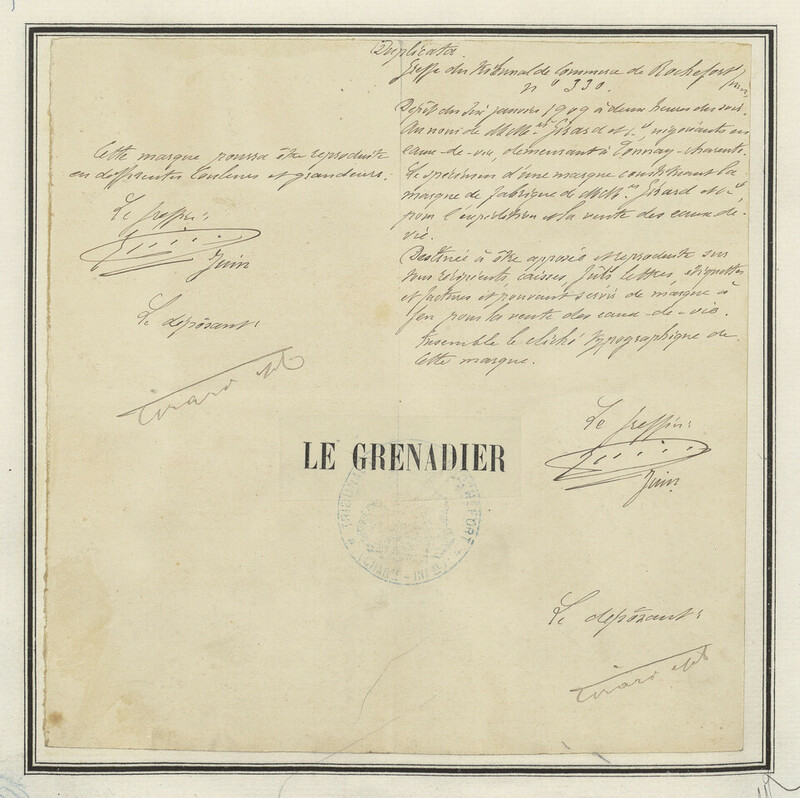 Duplicata
Greffe du Tribunal de Commerce de Rochefort s/mer
n° 330.
Dépôt du six janvier 1909 à deux heures du soir.
Au nom de MM.rs Girard et Cie, négociants en
eaux-de-vie, demeurant à Tonnay-Charente.
Le spécimen d'une marque constituant la
marque de fabrique de MM.rs Girard et Cie,
pour l'expédition et la vente des eaux-de-
vie.
Destinée à être apposée et reproduite sur
tous récipients, caisses, fûts lettres, étiquettes
et factures et pouvant servir de marque à
feu pour la vente des eaux-de-vie.
Ensemble le cliché typographique de
cette marque.
Cette marque pourra être reproduite
en différentes couleurs et grandeurs.
Le greffier:
Juin
Le déposant:
Girard et Co
LE GRENADIER
TRIBUNAL ROCHEFORT
CHARTE - INF
Le greffier:
Juin
Le déposant:
Girard et Co